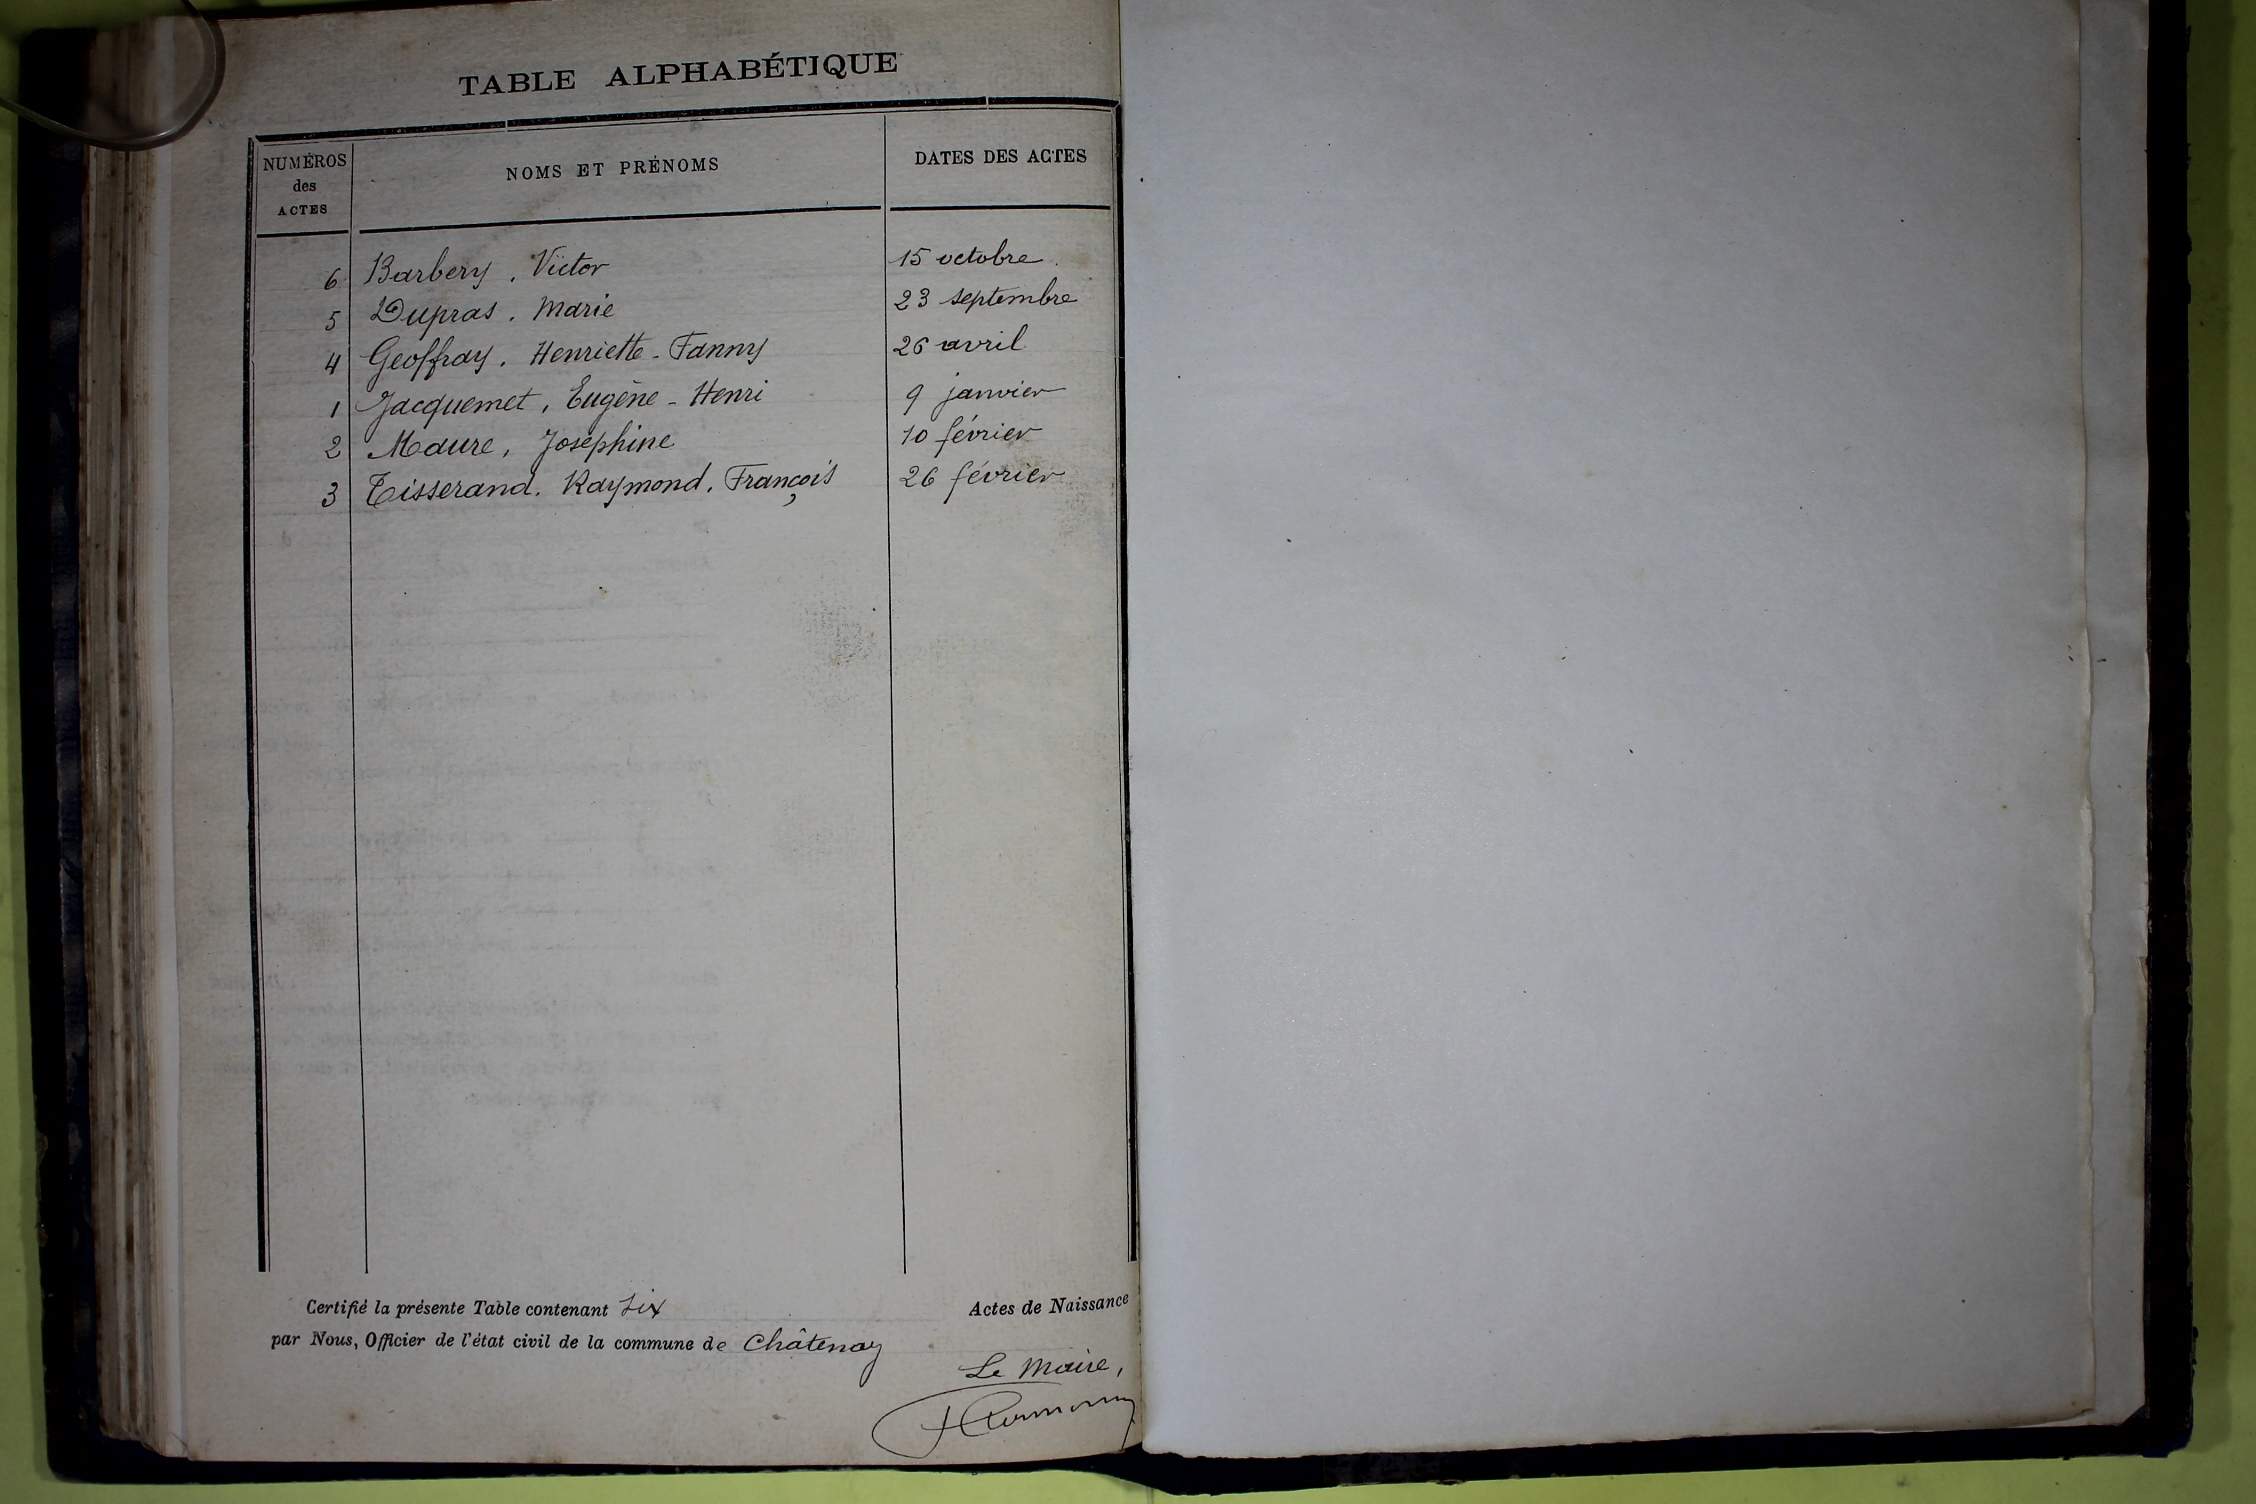 TABLE ALPHABÉTIQUE
NUMÉROS des ACTES NOMS ET PRÉNOMS DATES DES ACTES
6 Barbery, Victor 15 octobre
5 Dupras, Marie 23 septembre
4 Geoffray, Henriette-Fanny 26 avril
1 Jacquemet, Eugène-Henri 9 janvier
2 Maure, Joséphine 10 février
3 Tisserand, Raymond, François 26 février
Certifié la présente Table contenant six Actes de Naissance
par Nous, Officier de l'état civil de la commune de Châtenay
Le Maire,